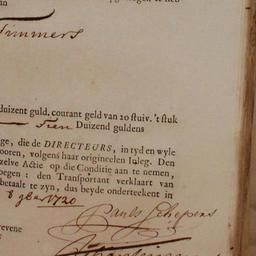 Timmers
duizent guld. courant geld van 20 stuiv. 't stuk
Tien Duizend guldens
ge, die de DIRECTEURS, in tyd en wyle
ooren, volgens haar origineelen Inleg. Den
zelve Actie op die Conditie aan te nemen,
oegen: den Transportant verklaart van
betaalt te zyn, dus beyde onderteekent in
8 gber 1720
Paulo Schepens
revene